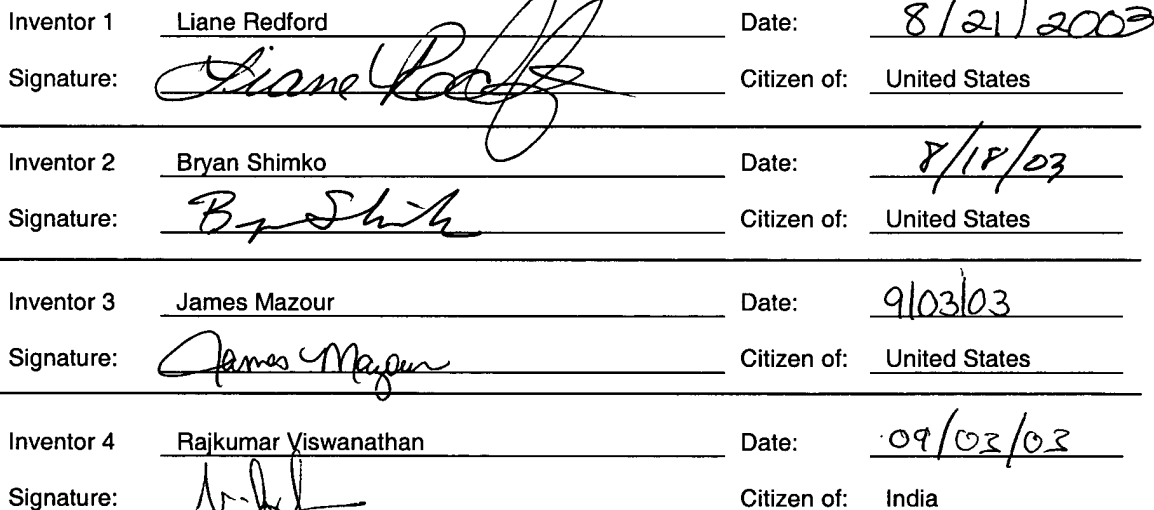 Inventor 1 Liane Redford Date: 8/21/2003
Signature: Liane Redford Citizen of: United States
Inventor 2 Bryan Shimko Date: 8/18/03
Signature: Citizen of: United States
Inventor 3 James Mazour Date: 9/03/03
Signature: James Mazour Citizen of: United States
Inventor 4 Rajkumar Viswanathan Date: 09/03/03
Signature: Citizen of: India